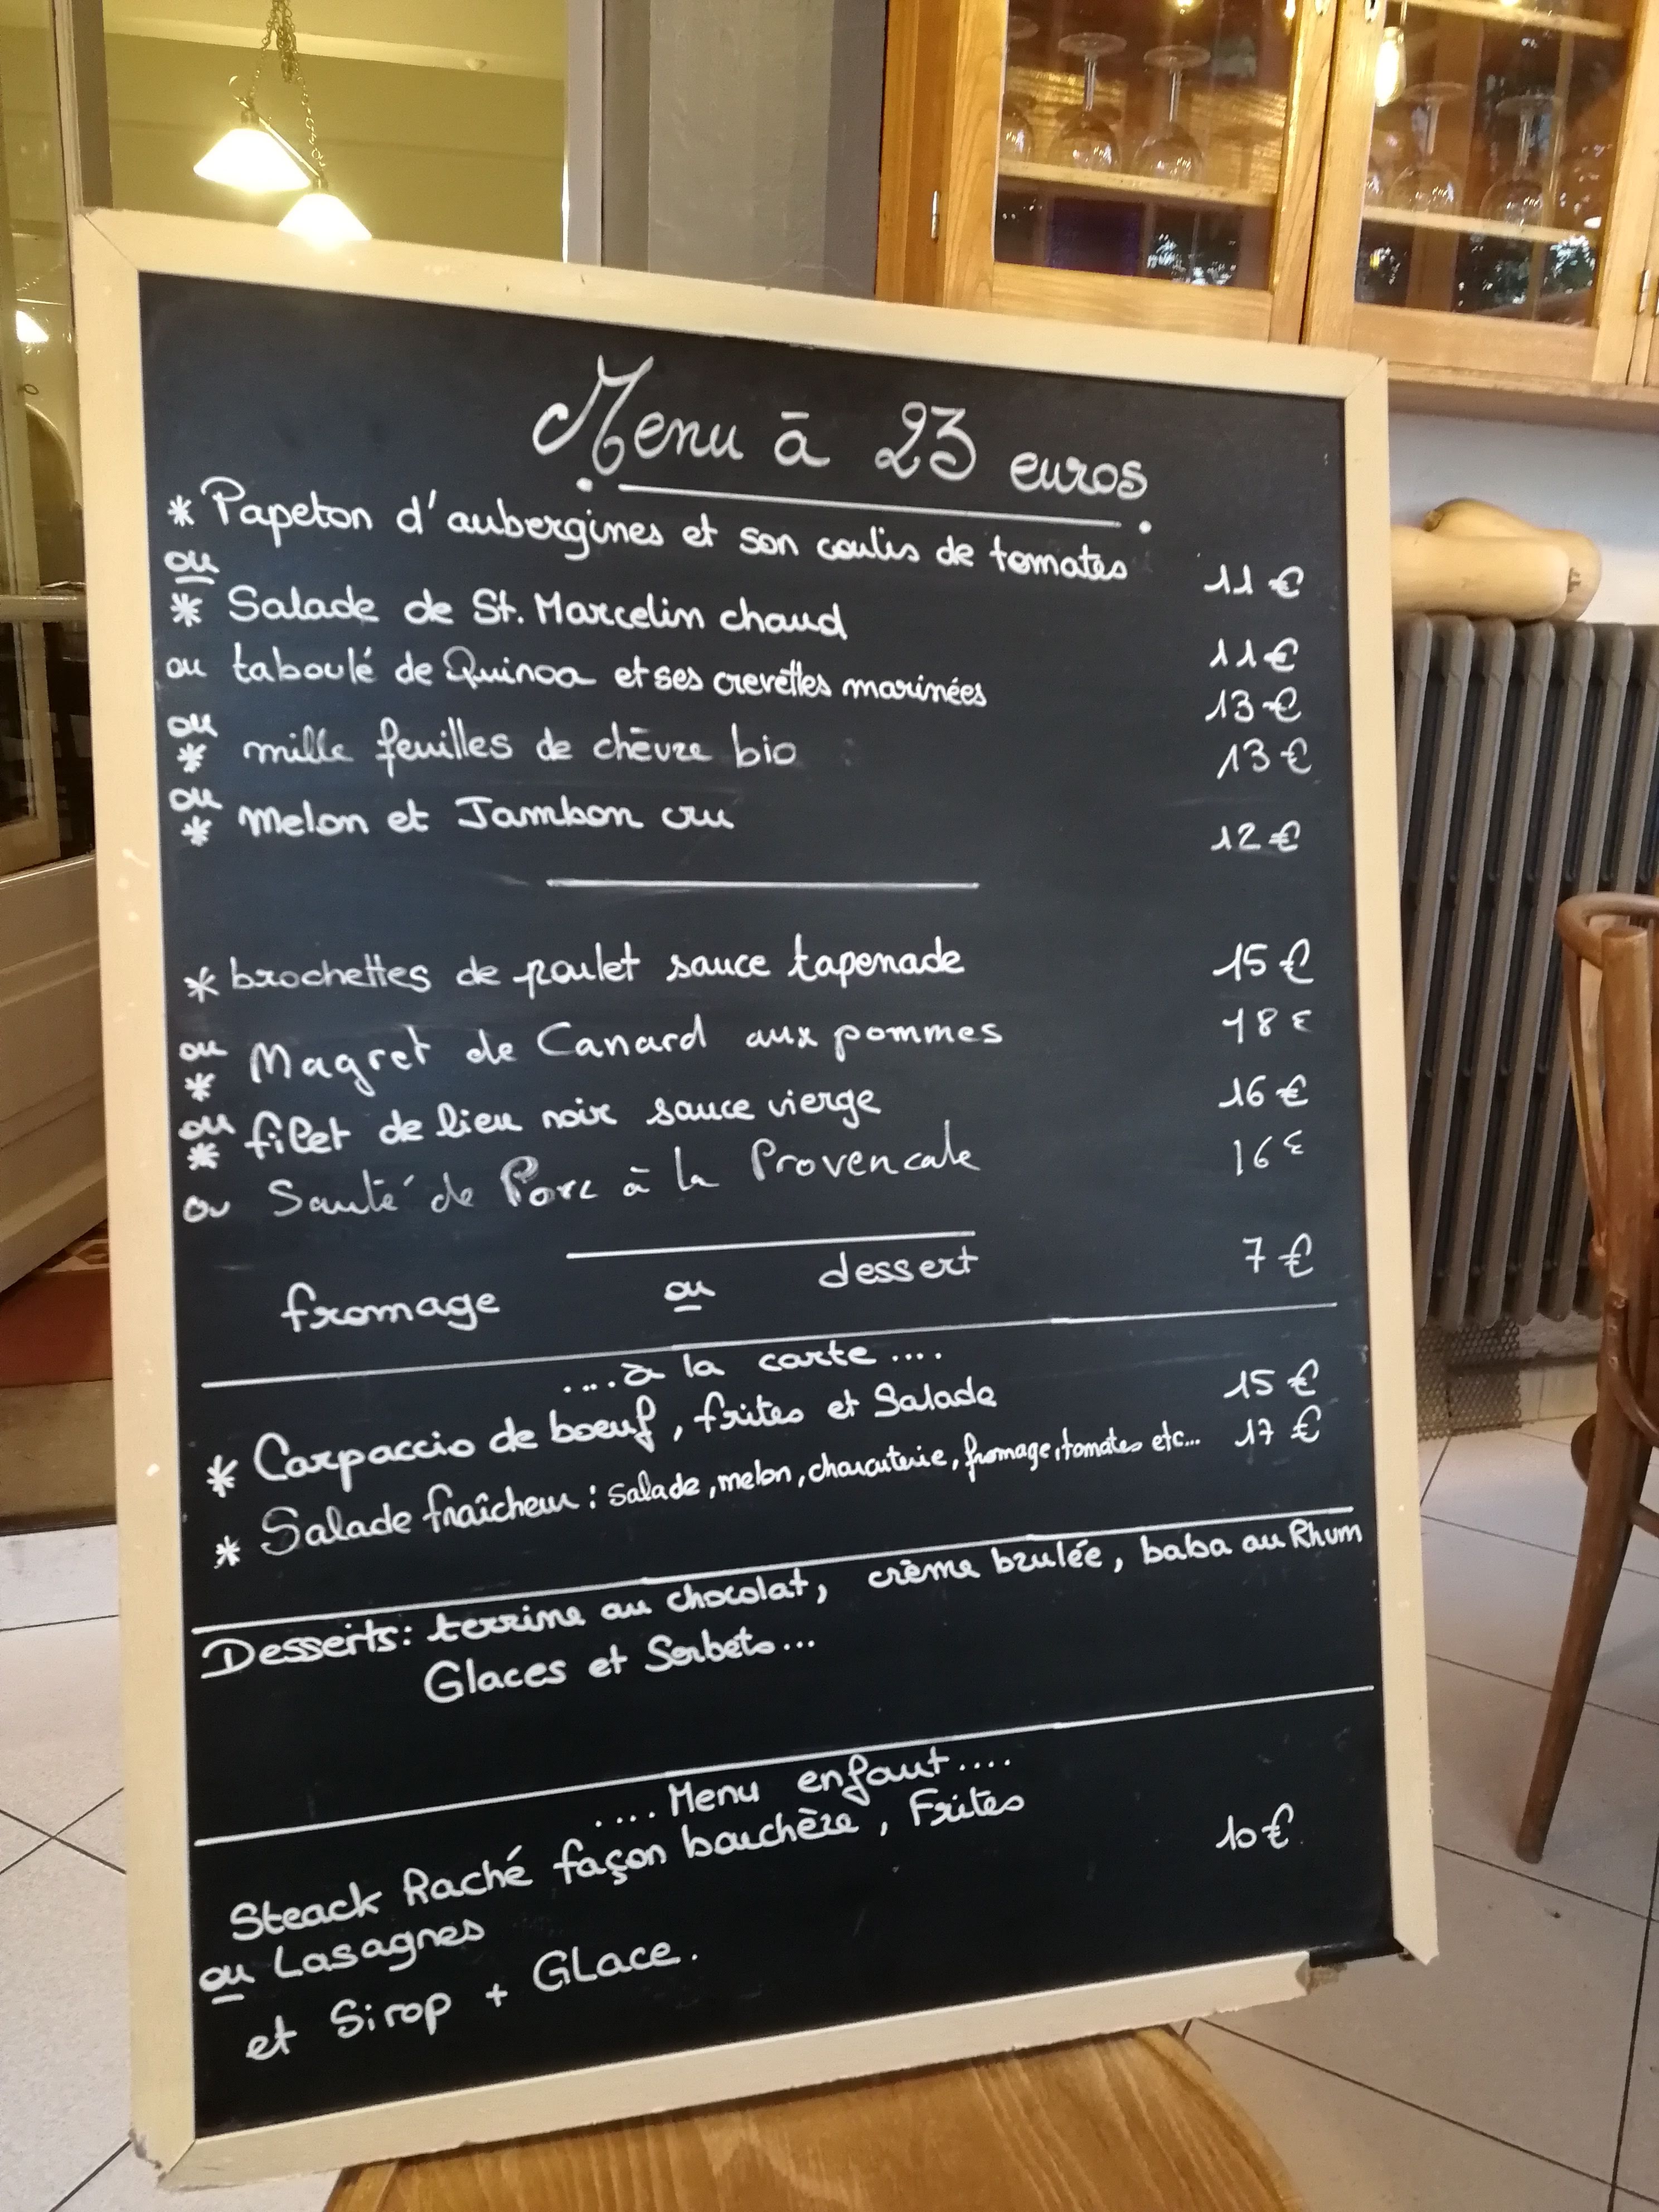 Menu à 23 euros
* Papeton d'aubergines et son coulis de tomates 11 €
ou
* Salade de St. Marcelin chaud 11 €
ou taboulé de Quinoa et ses crevettes marinées 13 €
ou
* mille feuilles de chèvre bio 13 €
ou
* Melon et Jambon cru 12 €
* brochettes de poulet sauce tapenade 15 €
ou
* Magret de Canard aux pommes 18 €
ou
* filet de lieu noir sauce vierge 16 €
ou Sauté de Porc à la Provencale 16 €
fromage ou dessert 7 €
....à la carte....
* Carpaccio de boeuf, frites et Salade 15 €
* Salade fraîcheur : salade, melon, charcuterie, fromage, tomates etc... 17 €
Desserts: terrine au chocolat, crème brulée, baba au Rhum
Glaces et Sorbets...
....Menu enfant....
Steack Haché façon bouchère, Frites 10 €
ou Lasagnes
et Sirop + Glace.